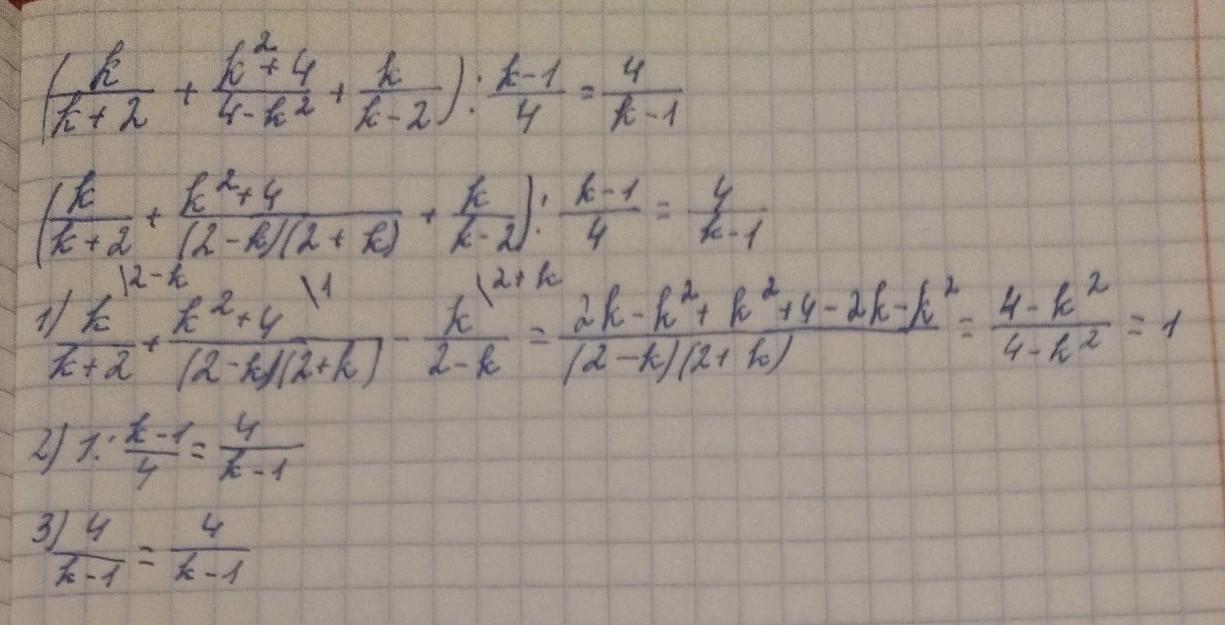 (k/(k+2) + (k²+4)/(4-k²) + k/(k-2)) : (k-1)/4 = 4/(k-1)
(k/(k+2) + (k²+4)/((2-k)(2+k)) + k/(k-2)) : (k-1)/4 = 4/(k-1)
1) k/(k+2) \2-k + (k²+4)/((2-k)(2+k)) \1 - k/(2-k) \2+k = (2k-k²+k²+4-2k-k²)/((2-k)(2+k)) = (4-k²)/(4-k²) = 1
2) 1 : (k-1)/4 = 4/(k-1)
3) 4/(k-1) = 4/(k-1)